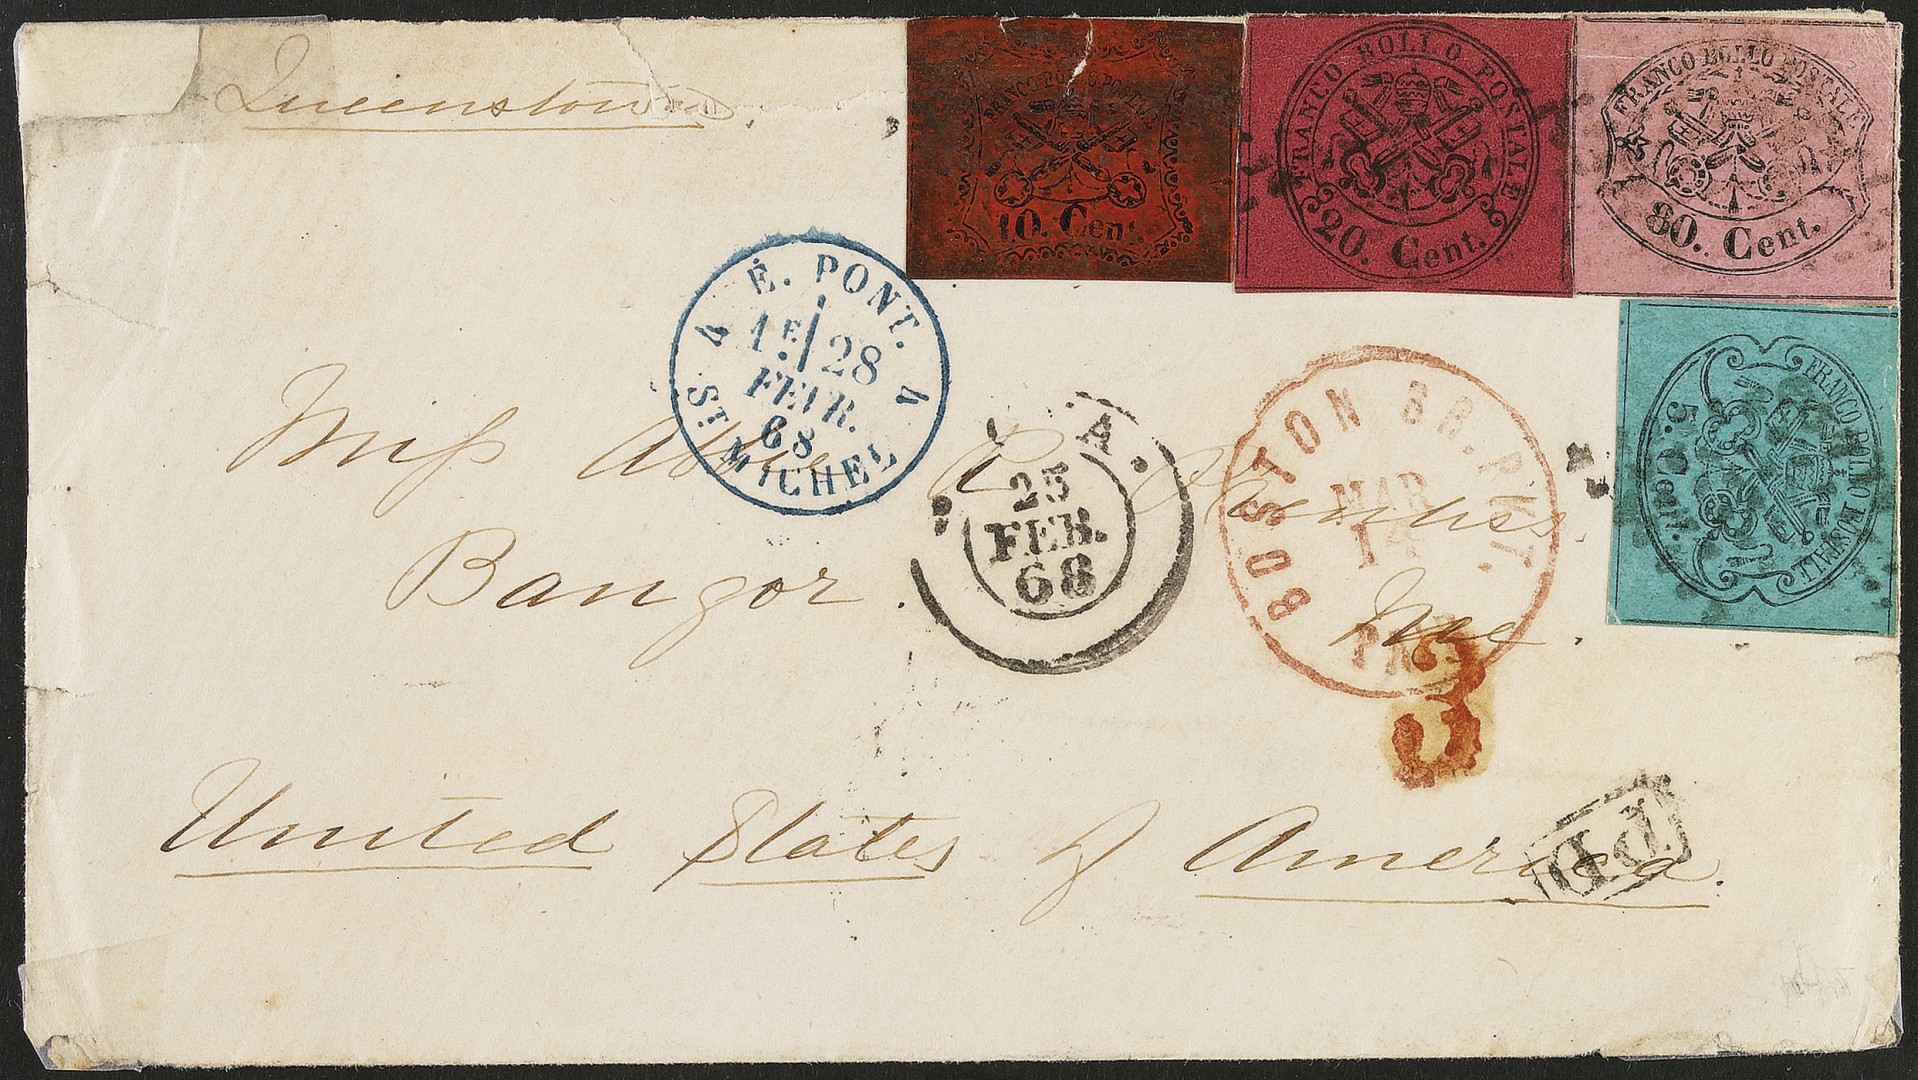 Queenstown.
FRANCO BOLLO POSTALE
10. Cent.
FRANCO BOLLO POSTALE
20. Cent.
FRANCO BOLLO POSTALE
80. Cent.
FRANCO BOLLO POSTALE
5. Cent.
É. PONT. A
1E 28
FEVR.
68
ST MICHEL A
A.
25
FEB.
68
BOSTON BR. PKT.
MAR
14
PAID
Miss Abbie P.
Bangor. Me.
3
United States of America.
PD